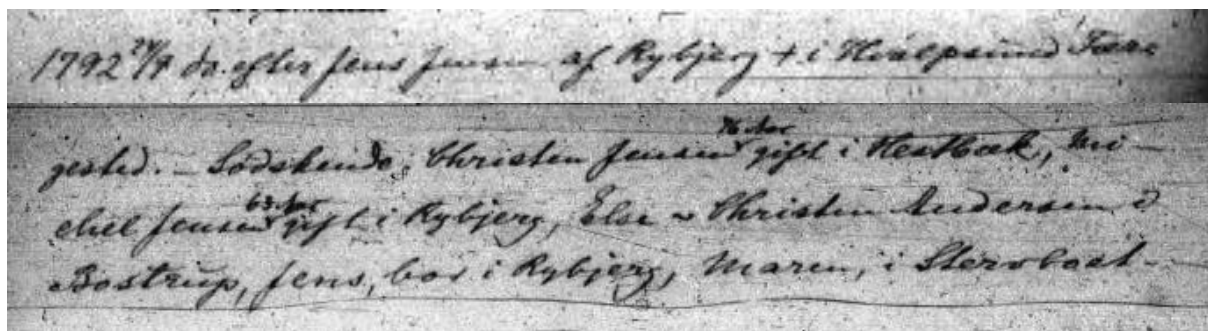 1792 24/9 do. efter Jens Jensen af Rybjerg + i Hvalpsund Fære
gested. – Sødskende, Christen Jensen 76 Aar gift i Hestbæk, Mi–
chel Jensen 63 Aar gift i Rybjerg, Else ~ Christen Andersen i
Bostrup, Jens, bor i Rybjerg, Maren, i Stervboet–